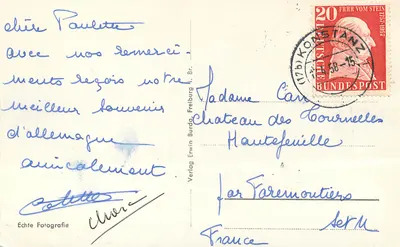 chère Paulette
avec nos remerci-
ments reçois notre
meilleur souvenir
d'allemagne
amicalement
Echte Fotografie
Verlag Erwin Burda, Freiburg i. Br.
20
FRHR VOM STEIN
1757-1957
BUNDESPOST
(17b) KONSTANZ
58-15
Madame Cari
Chateau des Tournelles
Hautefeuille
par Faremoutiers
S et M
France